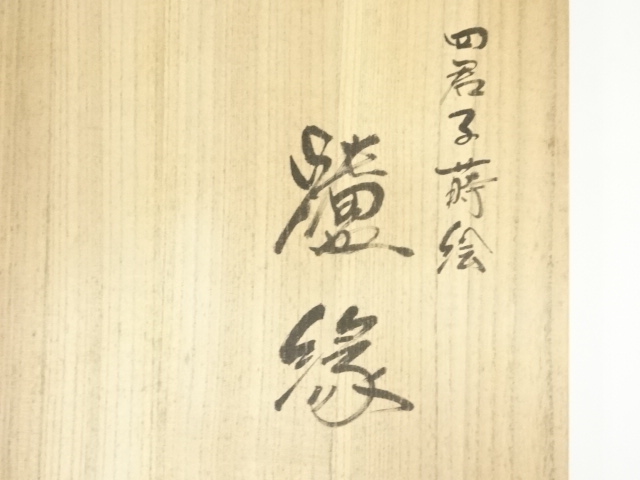 四君子蒔絵
爐縁